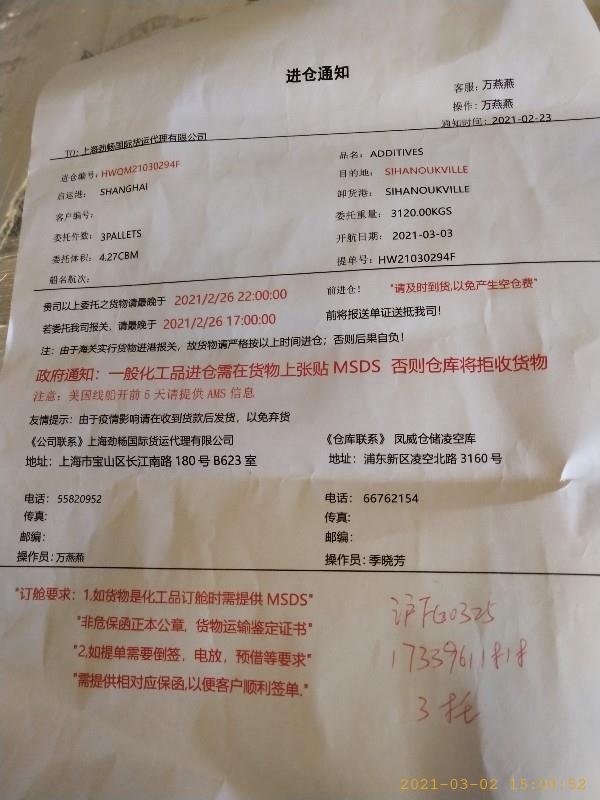 进仓通知
客服：万燕燕
操作：万燕燕
通知时间：2021-02-23
TO：上海劲畅国际货运代理有限公司
进仓编号：HWQM21030294F
品名：ADDITIVES
启运港： SHANGHAI
目的地： SIHANOUKVILLE
客户编号：
卸货港： SIHANOUKVILLE
委托件数：3PALLETS
委托重量： 3120.00KGS
委托体积：4.27CBM
开航日期： 2021-03-03
船名航次：
提单号：HW21030294F
贵司以上委托之货物请最晚于 2021/2/26 22:00:00 前进仓！ "请及时到货,以免产生空仓费"
若委托我司报关，请最晚于 2021/2/26 17:00:00 前将报送单证送抵我司！
注：由于海关实行货物进港报关，故货物请严格按以上时间进仓；否则后果自负！
政府通知：一般化工品进仓需在货物上张贴 MSDS 否则仓库将拒收货物
注意：美国线船开前 5 天请提供 AMS 信息
友情提示：由于疫情影响请在收到货款后发货，以免弃货
《公司联系》上海劲畅国际货运代理有限公司
《仓库联系》 凤威仓储凌空库
地址：上海市宝山区长江南路 180 号 B623 室
地址：浦东新区凌空北路 3160 号
电话： 55820952
电话： 66762154
传真:
传真:
邮编:
邮编:
操作员:万燕燕
操作员:季晓芳
"订舱要求：1.如货物是化工品订舱时需提供 MSDS"
"非危保函正本公章，货物运输鉴定证书"
"2.如提单需要倒签，电放，预借等要求"
"需提供相对应保函,以便客户顺利签单."
沪FG0325
17339611818
3托
2021-03-02 15:04:52